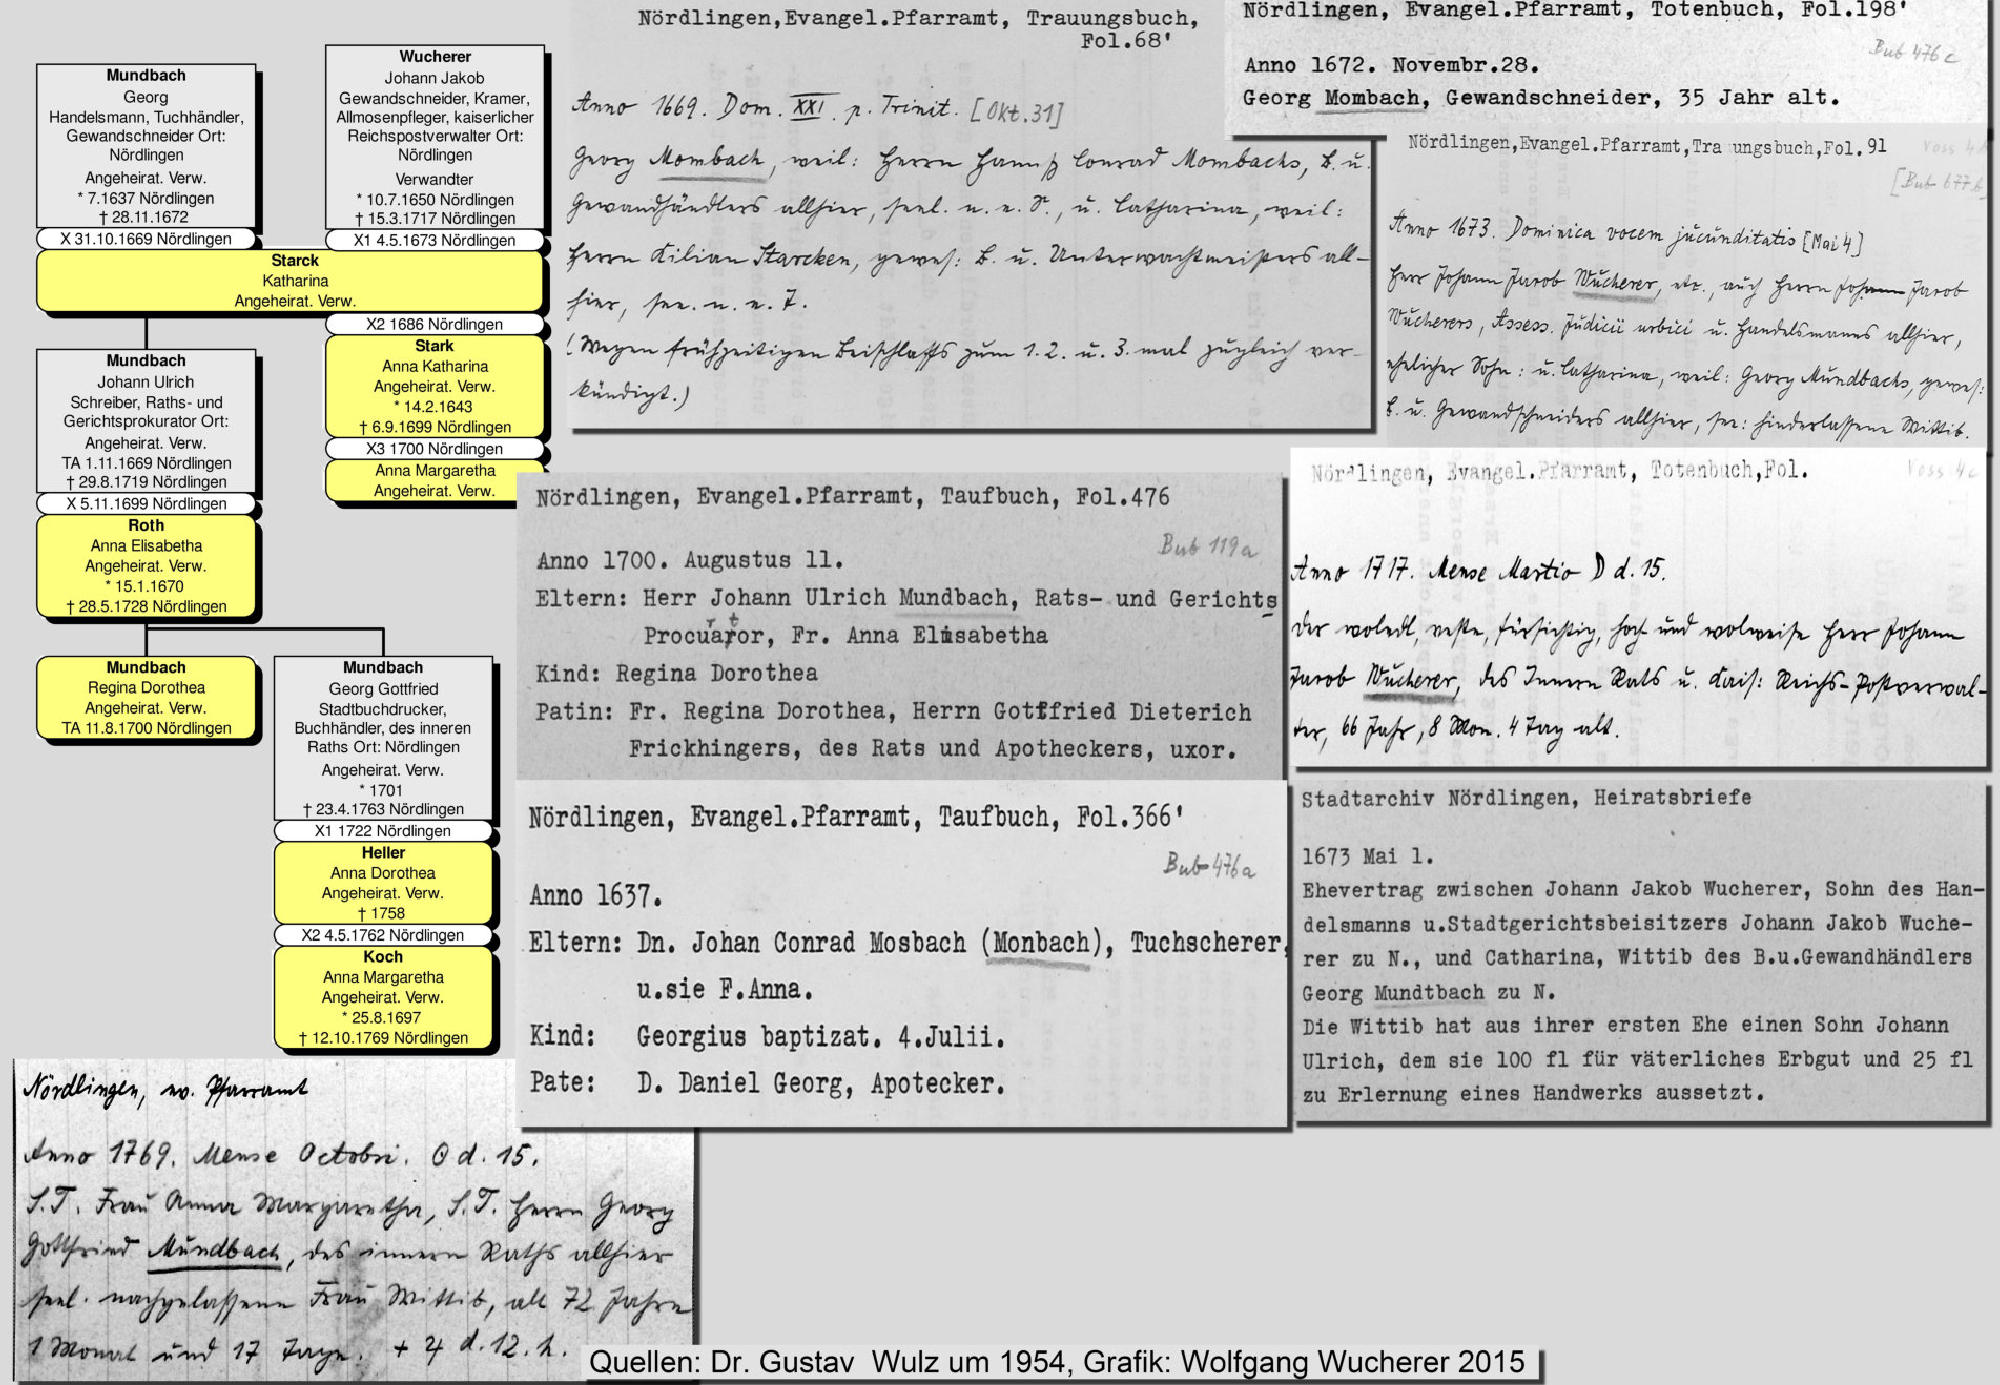 Mundbach
Georg
Handelsmann, Tuchhändler,
Gewandschneider Ort:
Nördlingen
Angeheirat. Verw.
* 7.1637 Nördlingen
† 28.11.1672
X 31.10.1669 Nördlingen
Wucherer
Johann Jakob
Gewandschneider, Kramer,
Allmosenpfleger, kaiserlicher
Reichspostverwalter Ort:
Nördlingen
Verwandter
* 10.7.1650 Nördlingen
† 15.3.1717 Nördlingen
X1 4.5.1673 Nördlingen
Starck
Katharina
Angeheirat. Verw.
X2 1686 Nördlingen
Stark
Anna Katharina
Angeheirat. Verw.
* 14.2.1643
† 6.9.1699 Nördlingen
X3 1700 Nördlingen
Anna Margaretha
Angeheirat. Verw.
Mundbach
Johann Ulrich
Schreiber, Raths- und
Gerichtsprokurator Ort:
Angeheirat. Verw.
TA 1.11.1669 Nördlingen
† 29.8.1719 Nördlingen
X 5.11.1699 Nördlingen
Roth
Anna Elisabetha
Angeheirat. Verw.
* 15.1.1670
† 28.5.1728 Nördlingen
Mundbach
Regina Dorothea
Angeheirat. Verw.
TA 11.8.1700 Nördlingen
Mundbach
Georg Gottfried
Stadtbuchdrucker,
Buchhändler, des inneren
Raths Ort: Nördlingen
Angeheirat. Verw.
* 1701
† 23.4.1763 Nördlingen
X1 1722 Nördlingen
Heller
Anna Dorothea
Angeheirat. Verw.
† 1758
X2 4.5.1762 Nördlingen
Koch
Anna Margaretha
Angeheirat. Verw.
* 25.8.1697
† 12.10.1769 Nördlingen
Nördlingen, Evangel.Pfarramt, Trauungsbuch,
Fol.68'
Anno 1669. Dom. XXI. p. Trinit. [Okt. 31]
Georg Mombach, weil: Herrn Hannß Conrad Mombachs, B. u.
Gewandhändlers allhier, seel. n. e. S., u. Catharina, weil:
Herrn Kilian Starcken, gewes: B. u. Unterwachtmeisters all-
hier, see. n. e. T.
(Wegen frühzeitigen Beischlaffs zum 1. 2. u. 3. mal zugleich ver-
kündigt.)
Nördlingen, Evangel.Pfarramt, Totenbuch, Fol.198'
Bub 476c
Anno 1672. Novembr.28.
Georg Mombach, Gewandschneider, 35 Jahr alt.
Nördlingen,Evangel.Pfarramt,Trauungsbuch,Fol.91
Voss
[Bub 677b
Anno 1673. Dominica vocem jucunditatis [Mai 4]
Herr Johann Jacob Wucherer, etc., auch Herrn Johann Jacob
Wucherers, Assess. Judicii urbici u. Handelsmanns allhier,
ehelicher Sohn: u. Catharina, weil: Georg Mundbachs, gewes:
B. u. Gewandschneiders allhier, see: hinderlassene Wittib.
Nördlingen, Evangel.Pfarramt, Totenbuch,Fol.
Voss 4c
Anno 1717. Mense Martio D d. 15.
Der woledl, veste, fürsichtig, hoch und wolweise Herr Johann
Jacob Wucherer, des Innern Rats u. Kais: Reichs-Postverwal-
ter, 66 Jahr, 8 Mon. 4 Tag alt.
Nördlingen, Evangel.Pfarramt, Taufbuch, Fol.476
Bub 119a
Anno 1700. Augustus 11.
Eltern: Herr Johann Ulrich Mundbach, Rats- und Gerichts
Procurator, Fr. Anna Elisabetha
Kind: Regina Dorothea
Patin: Fr. Regina Dorothea, Herrn Gottfried Dieterich
Frickhingers, des Rats und Apotheckers, uxor.
Nördlingen, Evangel.Pfarramt, Taufbuch, Fol.366'
Bub 476a
Anno 1637.
Eltern: Dn. Johan Conrad Mosbach (Monbach), Tuchscherer,
u.sie F.Anna.
Kind: Georgius baptizat. 4.Julii.
Pate: D. Daniel Georg, Apotecker.
Stadtarchiv Nördlingen, Heiratsbriefe
1673 Mai 1.
Ehevertrag zwischen Johann Jakob Wucherer, Sohn des Han-
delsmanns u.Stadtgerichtsbeisitzers Johann Jakob Wuche-
rer zu N., und Catharina, Wittib des B.u.Gewandhändlers
Georg Mundtbach zu N.
Die Wittib hat aus ihrer ersten Ehe einen Sohn Johann
Ulrich, dem sie 100 fl für väterliches Erbgut und 25 fl
zu Erlernung eines Handwerks aussetzt.
Nördlingen, ev. Pfarramt
Anno 1769. Mense Octobri. ⊙ d. 15.
S.T. Frau Anna Margaretha, S.T. Herrn Georg
Gottfried Mundbach, des innern Raths allhier
seel. nachgelassene Frau Wittib, alt 72 Jahre
1 Monat und 17 Tage. + ♃ d. 12. h.
Quellen: Dr. Gustav Wulz um 1954, Grafik: Wolfgang Wucherer 2015